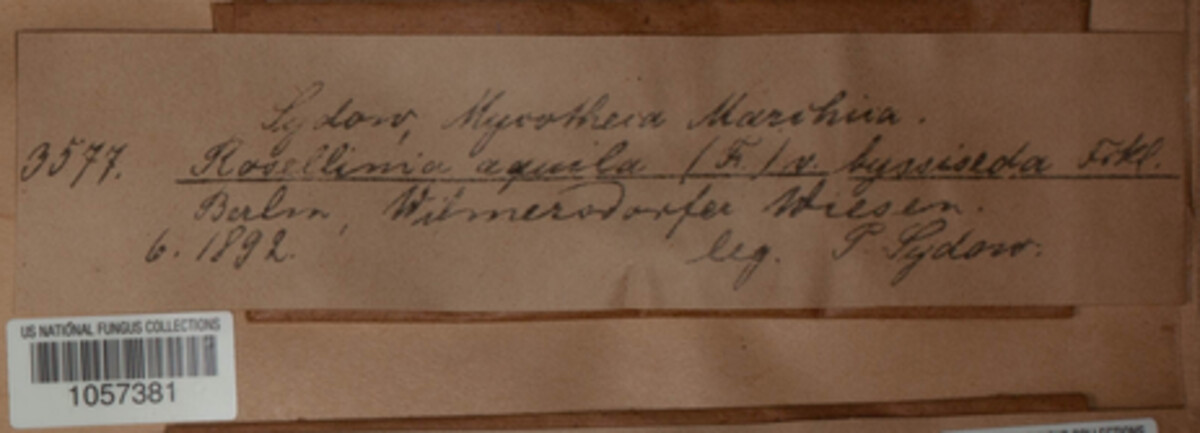 Sydow, Mycotheca Marchica.
3577. Rosellinia aquila (Fr.) v. byssiseda Fckl.
Berlin, Wilmersdorfer Wiesen.
6. 1892. leg. P. Sydow.
US NATIONAL FUNGUS COLLECTIONS
1057381
COLLECTIONS